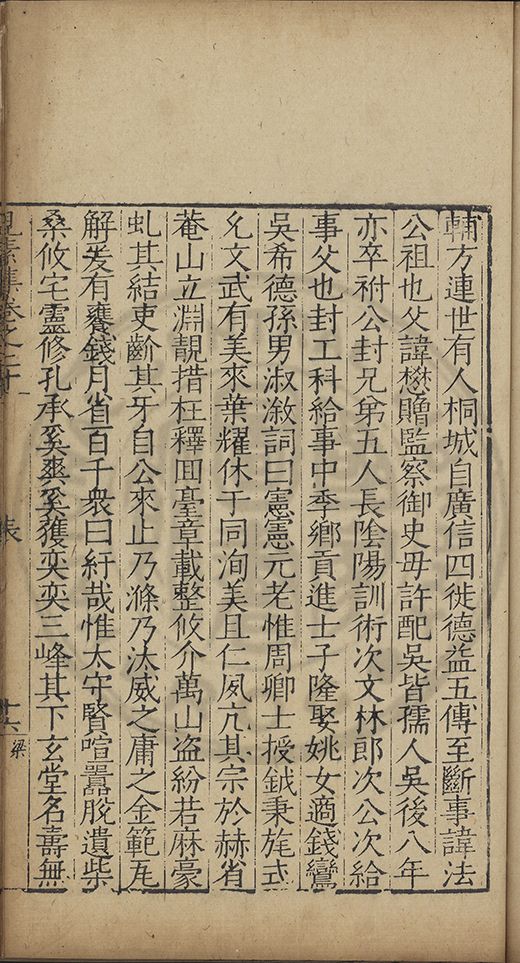 輔方連世有人桐城自廣信四徙德益五傳至斷事諱法
公祖也父諱懋贈監察御史毋許配吳皆孺人吳後八年
亦卒祔公封兄弟五人長陰陽訓術次文林郎次公次給
事父也封工科給事中季鄉貢進士子隆娶姚女適錢鸞
吳希德孫男淑潡詞曰憲憲元老惟周卿士授鉞秉旄式
允文武有美來葉耀休于同洵美且仁夙亢其宗於赫省
菴山立淵靚措枉釋田臺章載整攸介萬山盗紛若麻豪
虬其結吏齗其牙自公來止乃滌乃汰威之庸之金範瓦
解爰有饔錢月省百千衆曰紆哉惟太守賢喧囂脫遺柴
桑攸宅靈修孔承奚爽奚獲奕奕三峰其下玄堂名壽無
見素集卷之二十
十六
梁